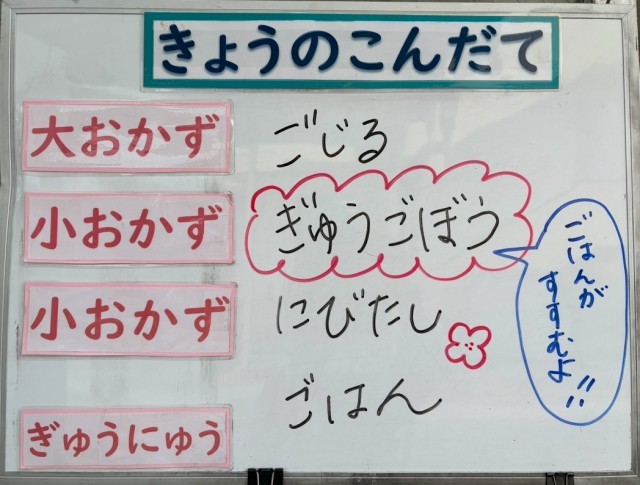 きょうのこんだて
大おかず
ごじる
小おかず
ぎゅうごぼう
ごはんが
すすむよ!!
小おかず
にびたし
ごはん
ぎゅうにゅう